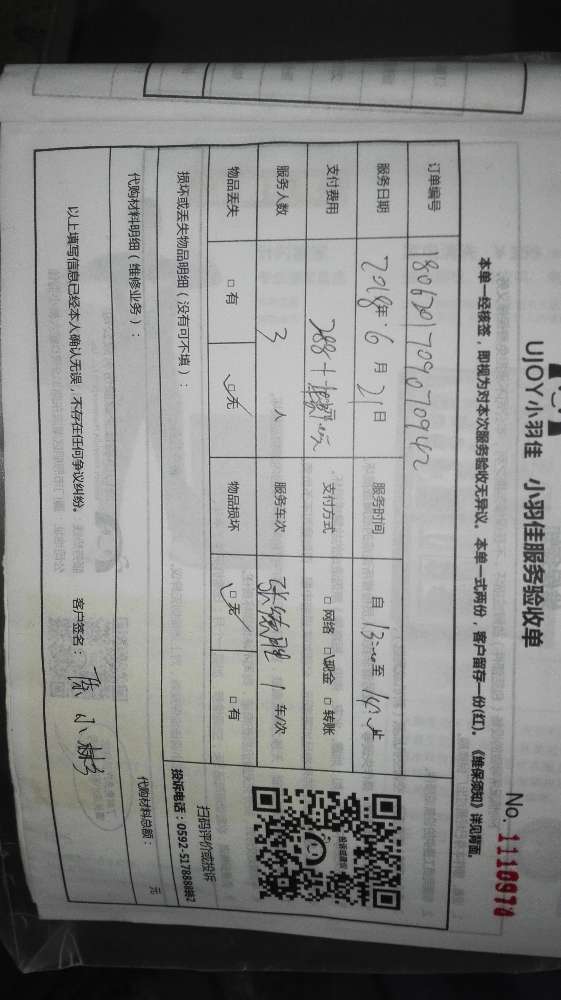 UJOY小羽佳 小羽佳服务验收单
No. 1110970
本单一经核签，即视为对本次服务验收无异议。本单一式两份，客户留存一份(红)。《维保须知》详见背面。
订单编号 180621709070942
服务日期 2018年 6 月 21 日 服务时间 自 13:00 至 14
支付费用 288 支付方式 □ 网络 □ 现金 □ 转账
服务人数 3 人 服务车次 1 车/次
物品丢失 □ 有 □ 无 物品损坏 □ 无 □ 有
投诉或建议
扫码评价或投诉
损坏或丢失物品明细（没有可不填）：
投诉电话：0592-5178888转2
代购材料明细（维修业务）：
代购材料总额： 元
以上填写信息已经本人确认无误，不存在任何争议纠纷。 客户签名： 陈小